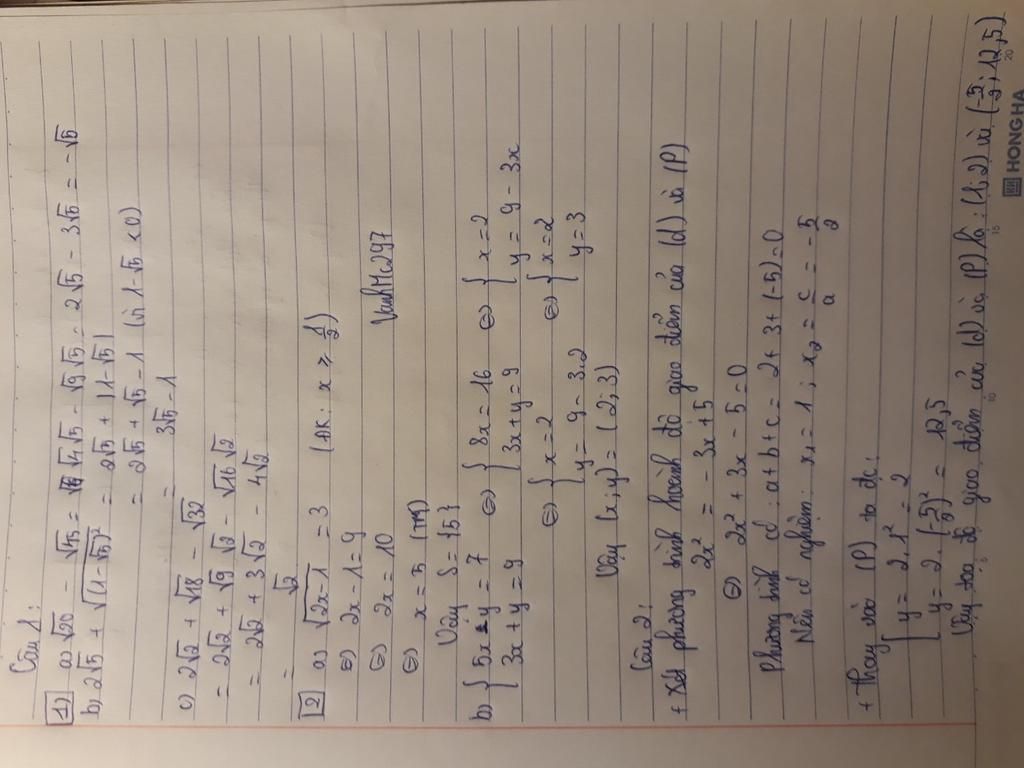 Câu 1:
1) a) √20 - √45 = √4√5 - √9√5 = 2√5 - 3√5 = -√5
b) 2√5 + √(1-√5)² = 2√5 + |1-√5|
= 2√5 + √5 - 1 (vì 1-√5 < 0)
= 3√5 - 1
c) 2√2 + √18 - √32
= 2√2 + √9 √2 - √16 √2
= 2√2 + 3√2 - 4√2
= √2
2 a) √2x-1 = 3 (ĐK: x ≥ 1/2)
⇔ 2x - 1 = 9
⇔ 2x = 10 VanhMc297
⇔ x = 5 (TM)
Vậy S = {5}
b) { 5x - y = 7 ⇔ { 8x = 16 ⇔ { x = 2
3x + y = 9 3x + y = 9 y = 9 - 3x
⇔ { x = 2 ⇔ { x = 2
y = 9 - 3.2 y = 3
Vậy (x; y) = (2; 3)
Câu 2:
+ Xét phương trình hoành độ giao điểm của (d) và (P)
2x² = -3x + 5
⇔ 2x² + 3x - 5 = 0
Phương trình có: a + b + c = 2 + 3 + (-5) = 0
Nên có nghiệm: x₁ = 1; x₂ = c/a = -5/2
+ Thay vào (P) ta đc:
{ y = 2.1² = 2
y = 2.(-5/2)² = 12,5
Vậy tọa độ giao điểm của (d) và (P) là: (1; 2) và (-5/2; 12,5)
HONG HA
5 10 15 20